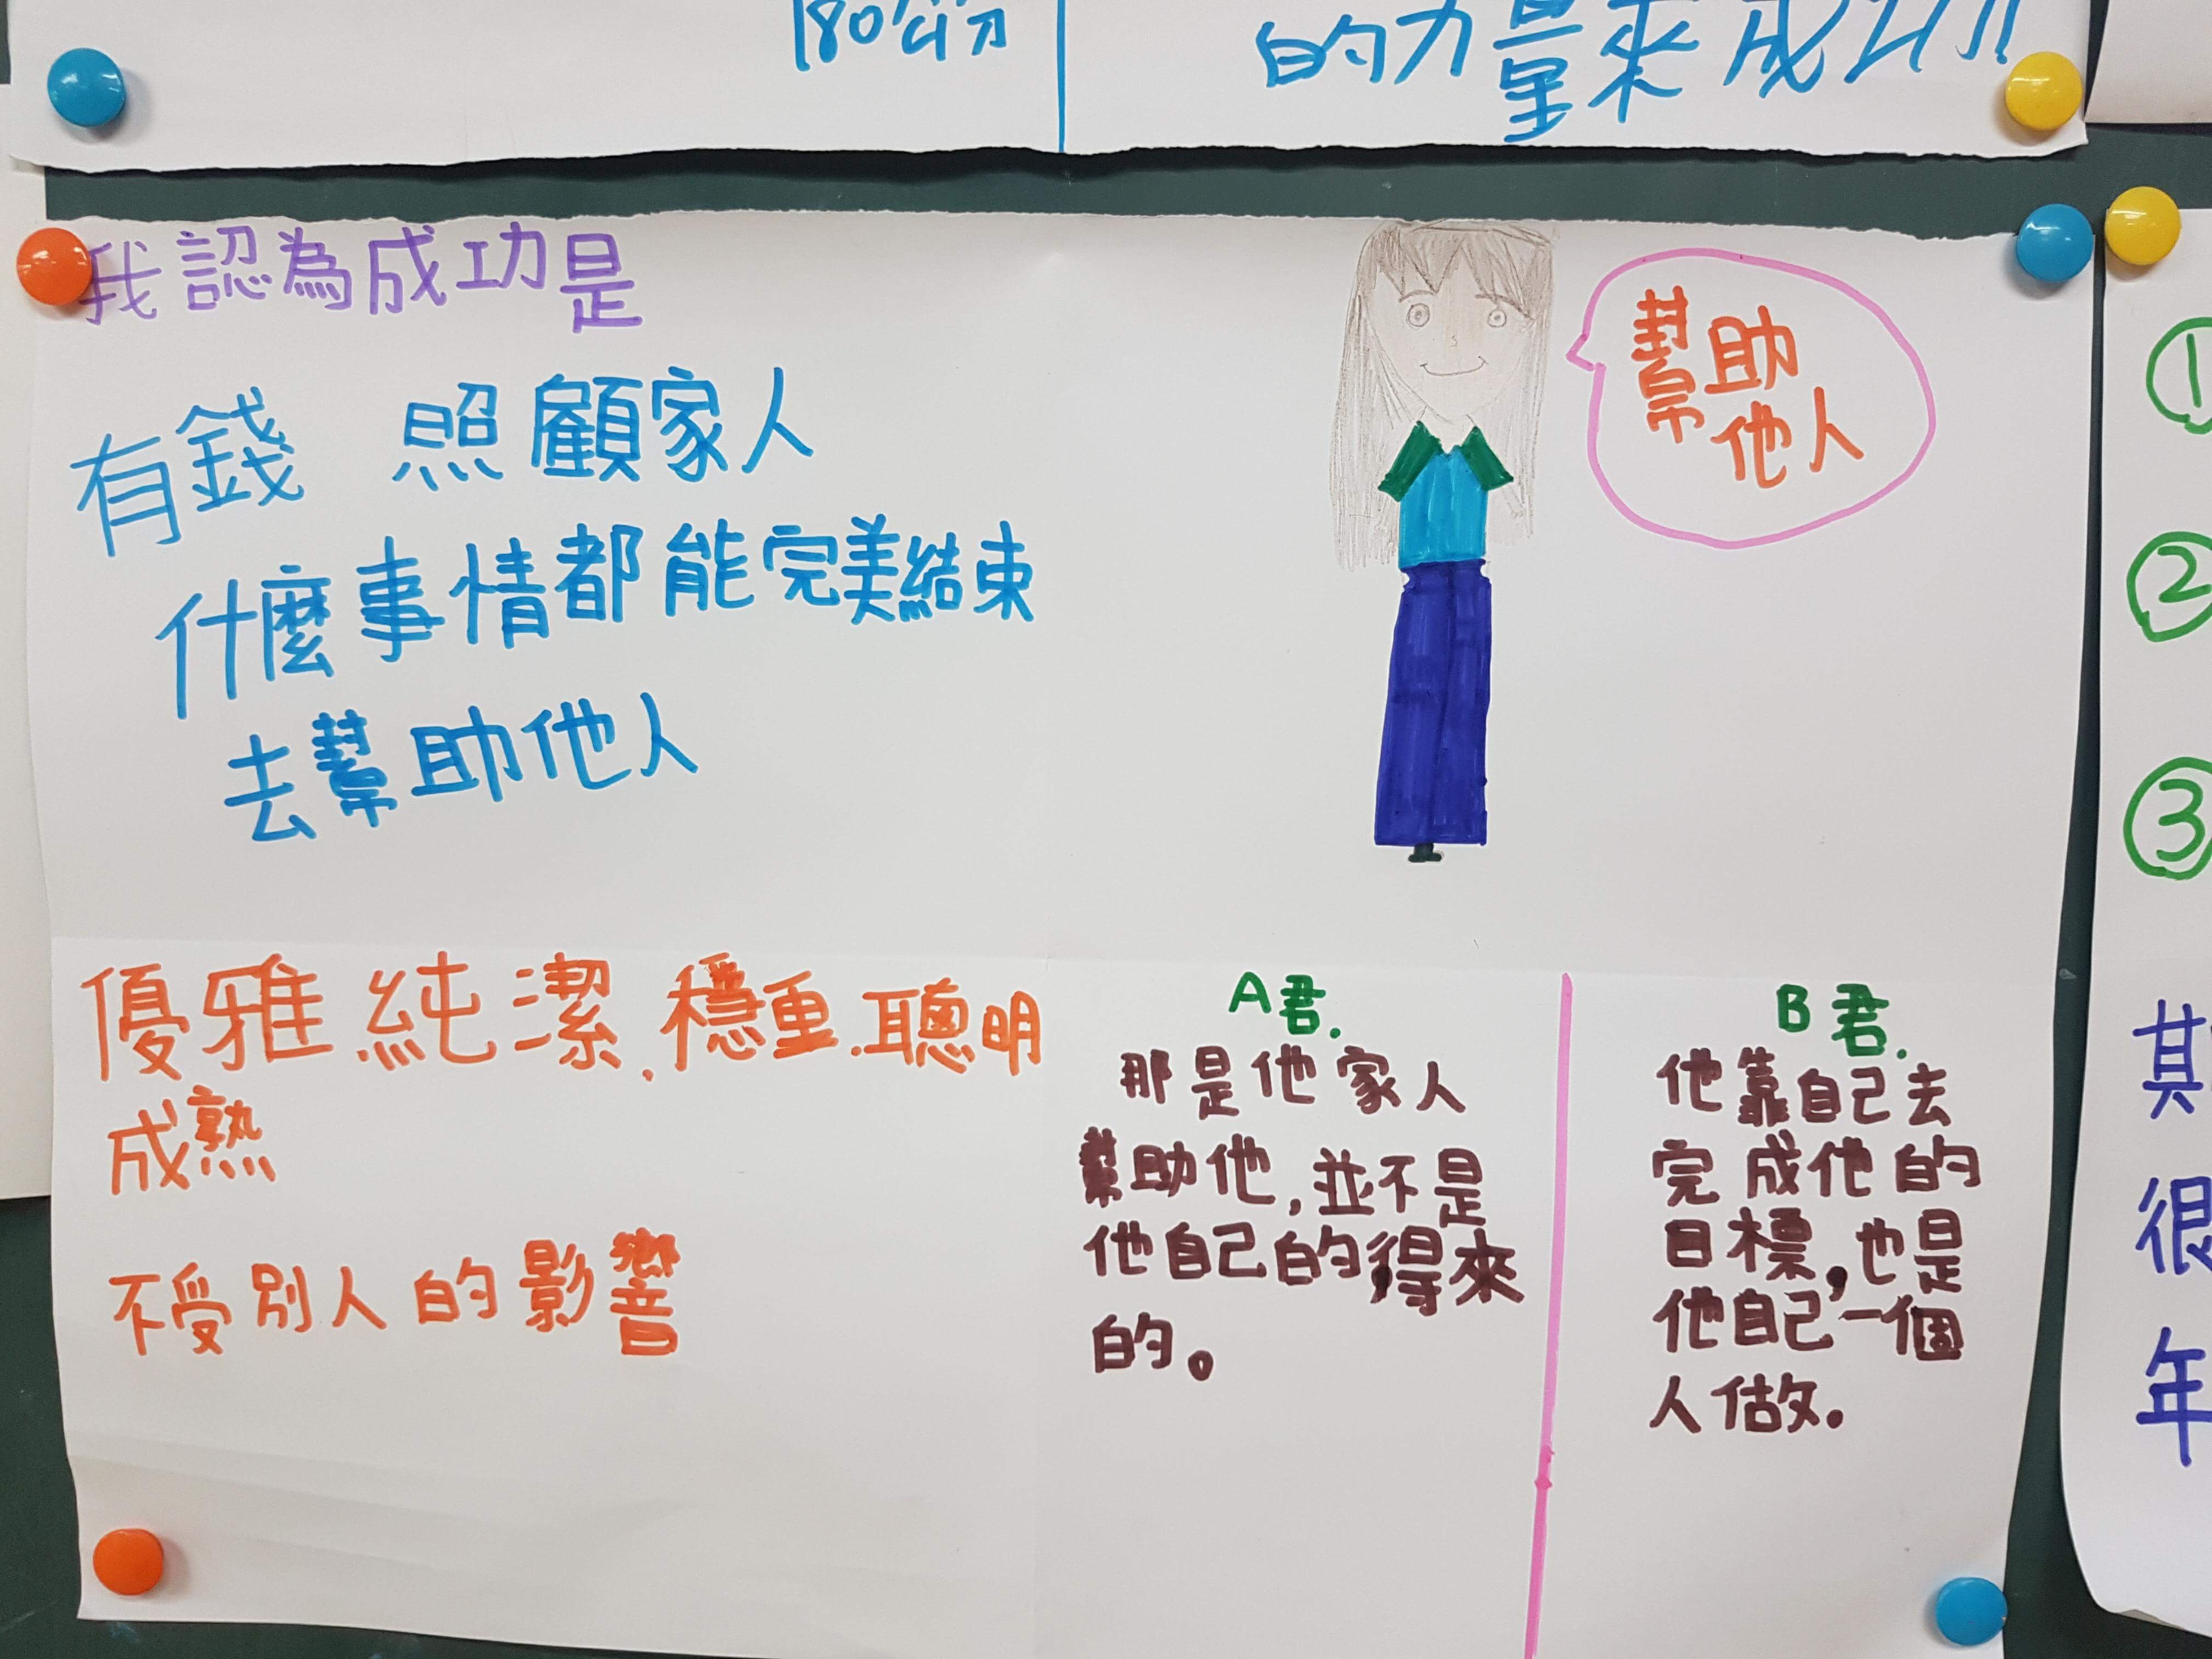 180公分
的力量來成功!
我認為成功是
有錢 照顧家人
什麼事情都能完美結束
去幫助他人
幫助
他人
優雅 純潔.穩重.聰明
成熟
不受別人的影響
A君.
那是他家人
幫助他,並不是
他自己的得來
的。
B君.
他靠自己去
完成他的
目標,也是
他自己一個
人做.
①
②
③
其
很
年